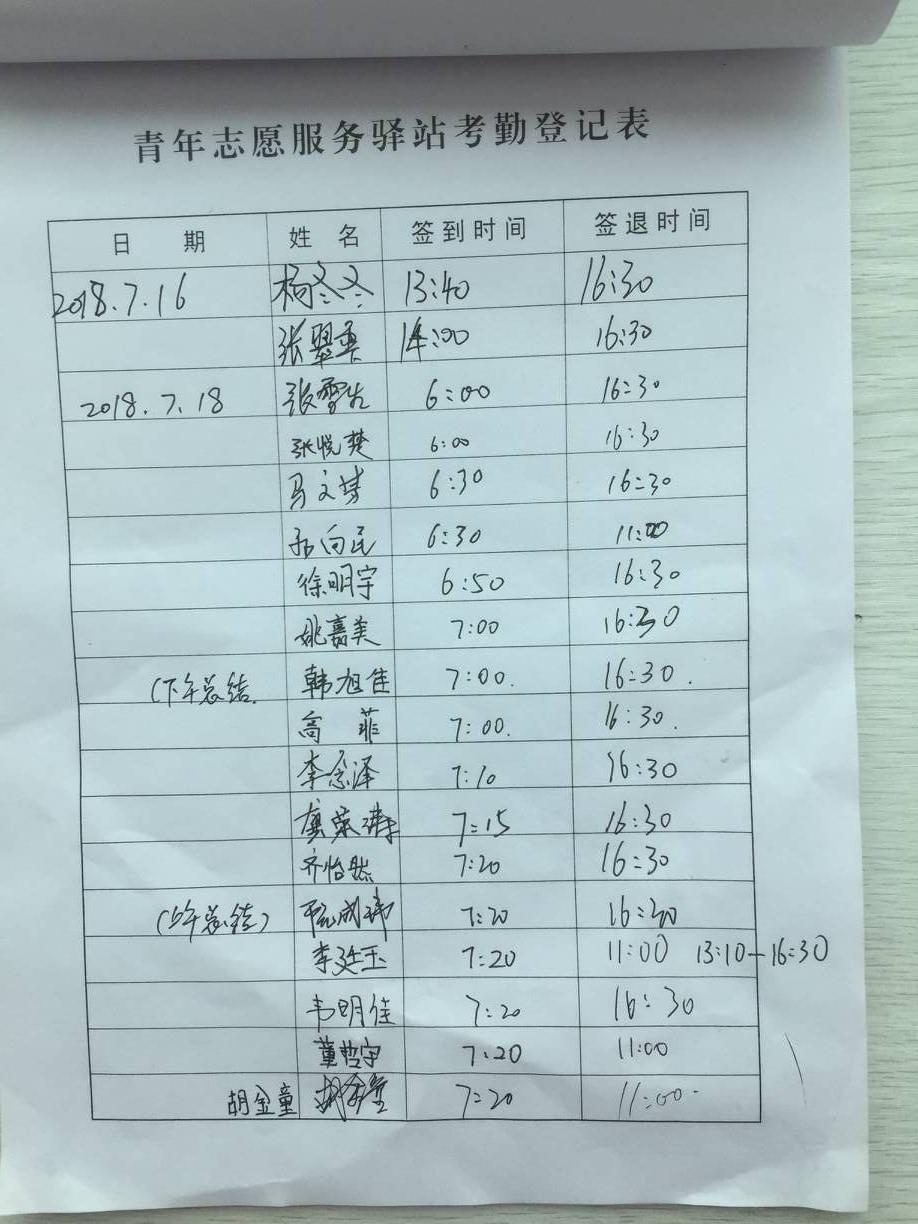 青年志愿服务驿站考勤登记表
日 期 姓 名 签到时间 签退时间
2018.7.16 杨冬冬 13:40 16:30
张翠 14:00 16:30
2018.7.18 张雪 6:00 16:30
张悦楚 6:00 16:30
马文 6:30 16:30
向民 6:30 11:00
徐明宇 6:50 16:30
姚嘉美 7:00 16:30
(下午总结 韩旭佳 7:00. 16:30.
高 菲 7:00. 16:30.
李念泽 7:10 16:30
荣 7:15 16:30
齐怡然 7:20 16:30
(上午总结) 成 7:20 16:30
李廷玉 7:20 11:00 13:10-16:30
韦明佳 7:20 16:30
董哲宇 7:20 11:00
胡金童 胡金童 7:20 11:00